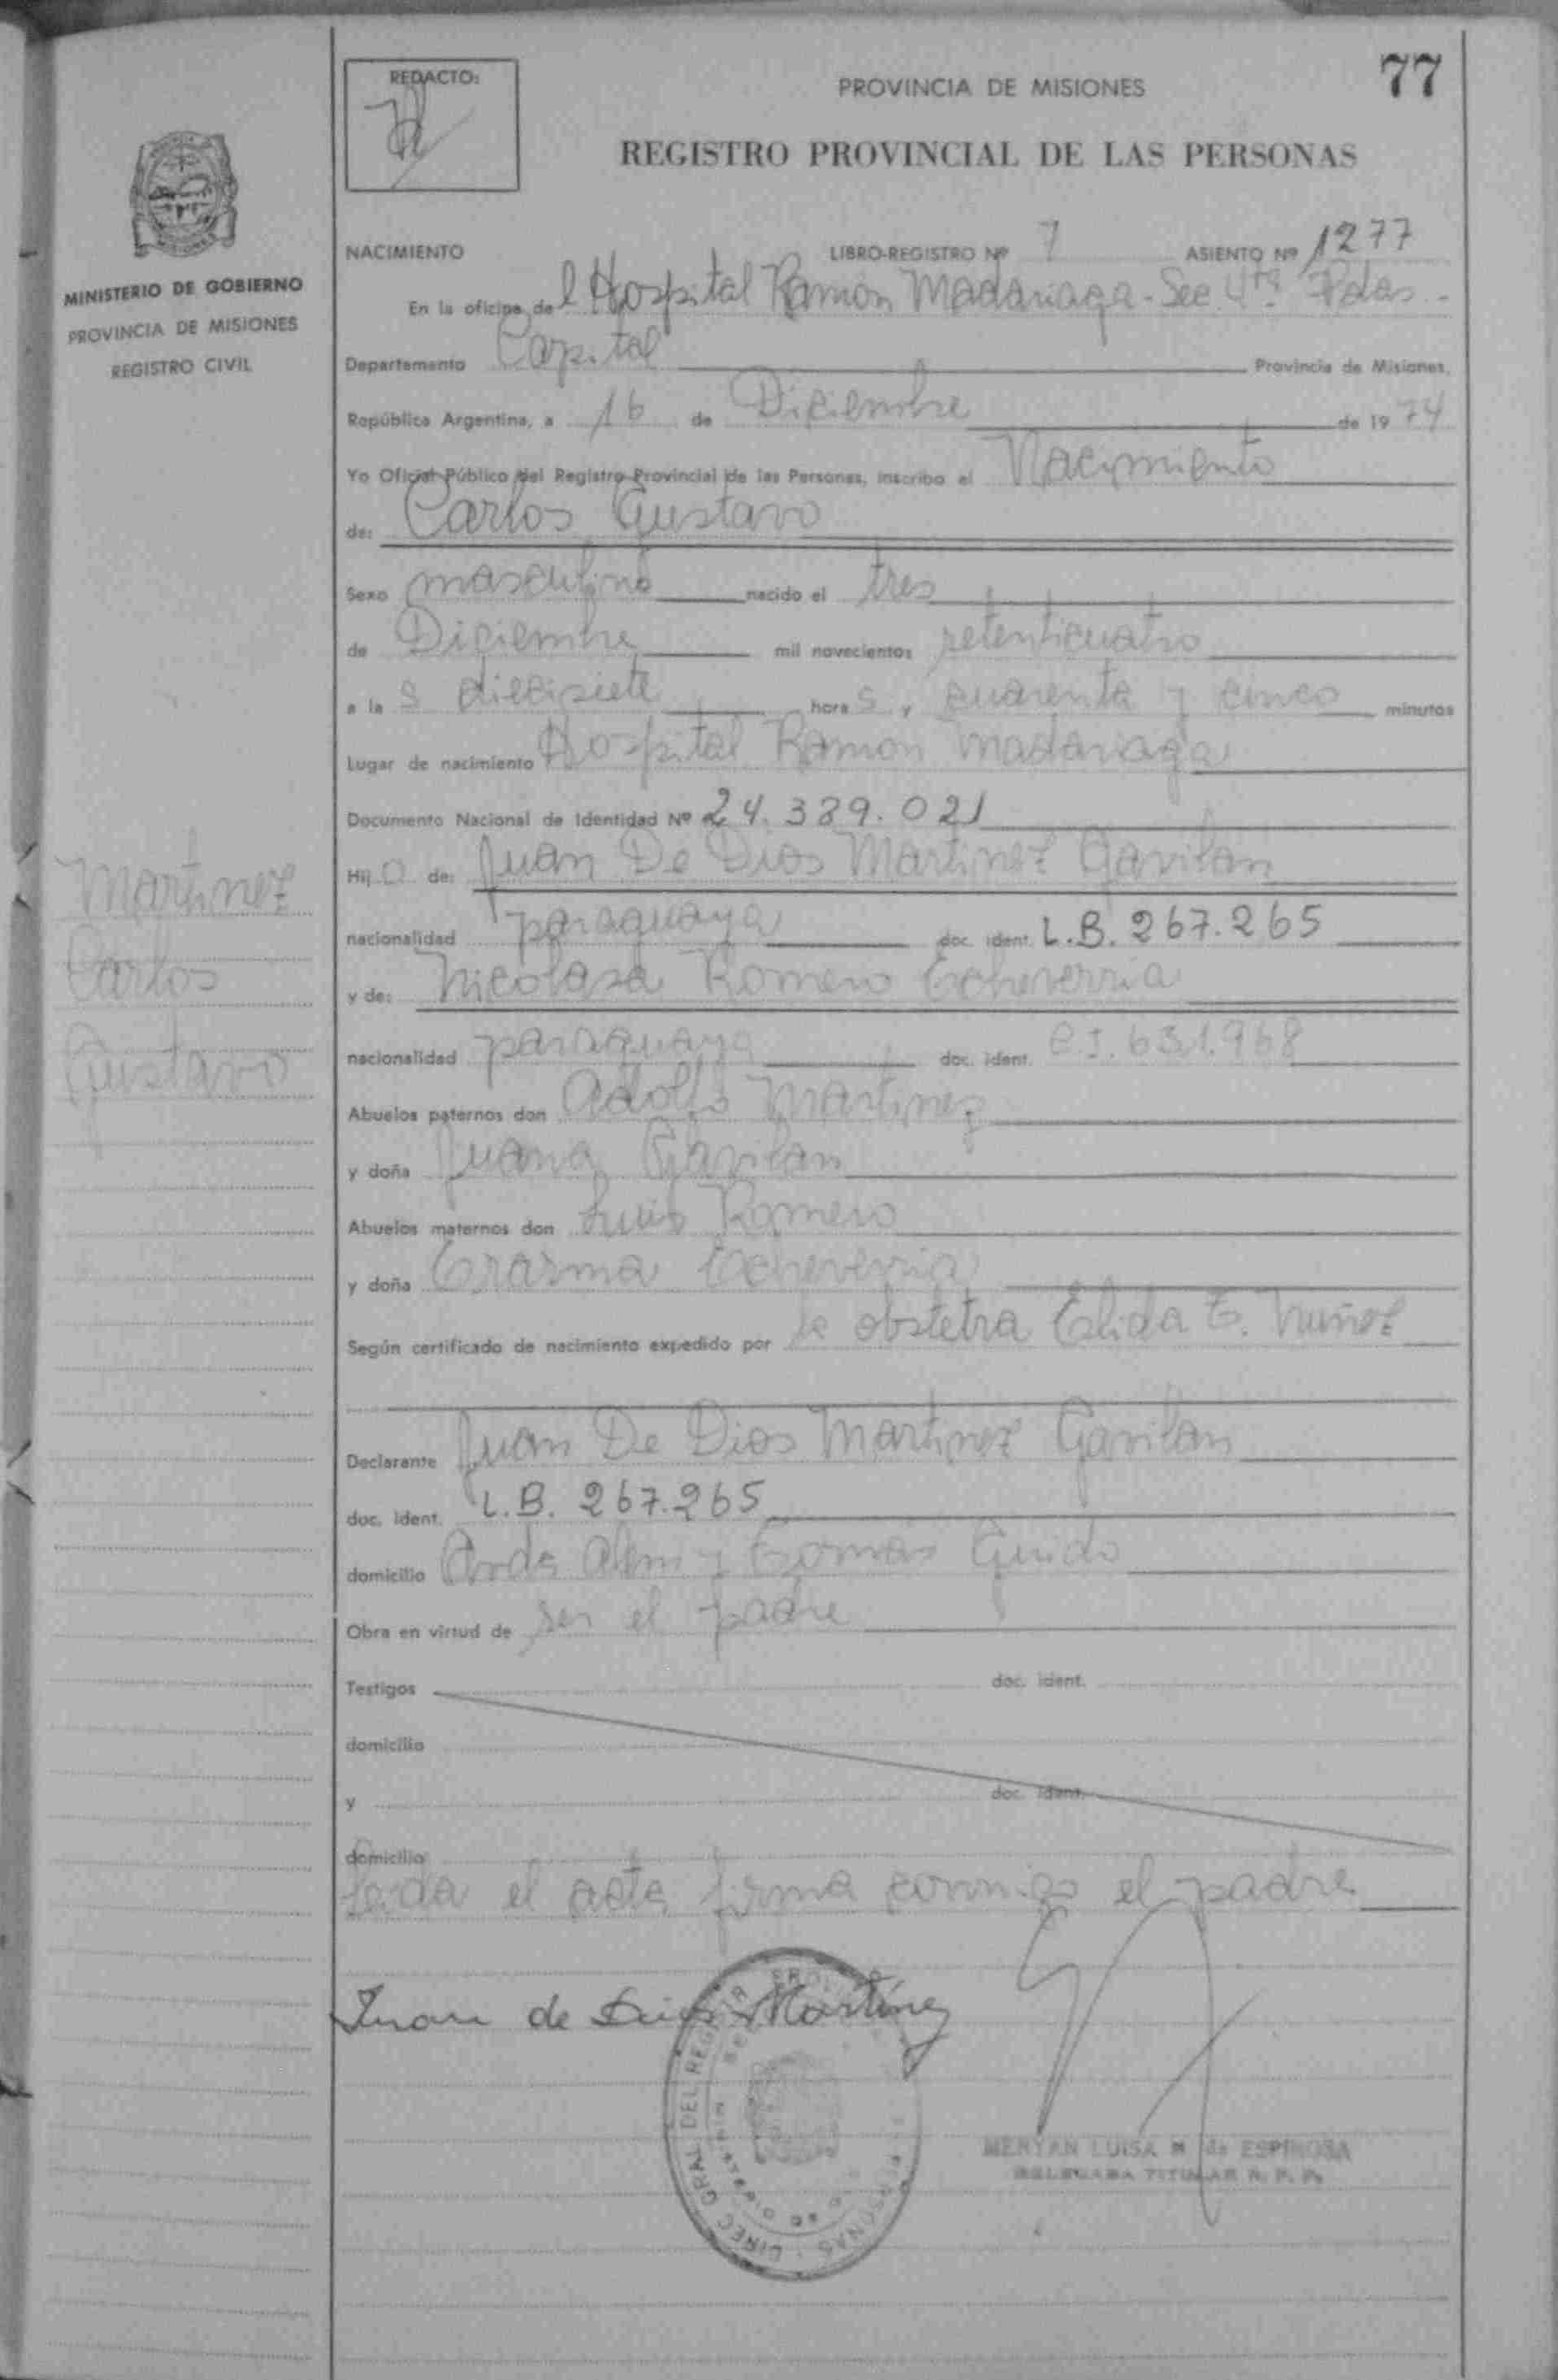 77
REDACTO:
PROVINCIA DE MISIONES
REGISTRO PROVINCIAL DE LAS PERSONAS
MINISTERIO DE GOBIERNO
PROVINCIA DE MISIONES
REGISTRO CIVIL
NACIMIENTO LIBRO-REGISTRO Nº 7 ASIENTO Nº 1277
En la oficina del Hospital Ramón Madariaga - Sec. 4ta Pdas -
Departamento Capital Provincia de Misiones,
República Argentina, a 16 de Diciembre de 1974
Yo Oficial Público del Registro Provincial de las Personas, inscribo el Nacimiento
de: Carlos Gustavo
Sexo masculino nacido el tres
de Diciembre mil novecientos setenticuatro
a la s diecisiete hora s y cuarenta y cinco minutos
Lugar de nacimiento Hospital Ramon Madariaga
Documento Nacional de Identidad Nº 24.389.021
Hij o de: Juan De Dios Martinez Gavilan
nacionalidad paraguaya doc. ident. L.B. 267.265
y de: Nicolasa Romero Echeverria
nacionalidad paraguaya doc. ident. C.I. 631.968
Abuelos paternos don Adolfo Martinez
y doña Juana Gavilan
Abuelos maternos don Luis Romero
y doña Erasma Echeverria
Según certificado de nacimiento expedido por la obstetra Elida E. Nuñez
Declarante Juan De Dios Martinez Gavilan
doc. ident. L.B. 267.265
domicilio Avda Alem y Tomás Guido
Obra en virtud de ser el padre
Testigos doc. ident.
domicilio
y doc. ident.
domicilio
Leida el acta firma conmigo el padre
Martinez
Carlos
Gustavo
Juan de Dios Martínez
DIREC. GRAL. DEL REGISTRO
PERSONAS
MENYAN LUISA M. de ESPINOSA
DELEGADA TITULAR R. P. P.